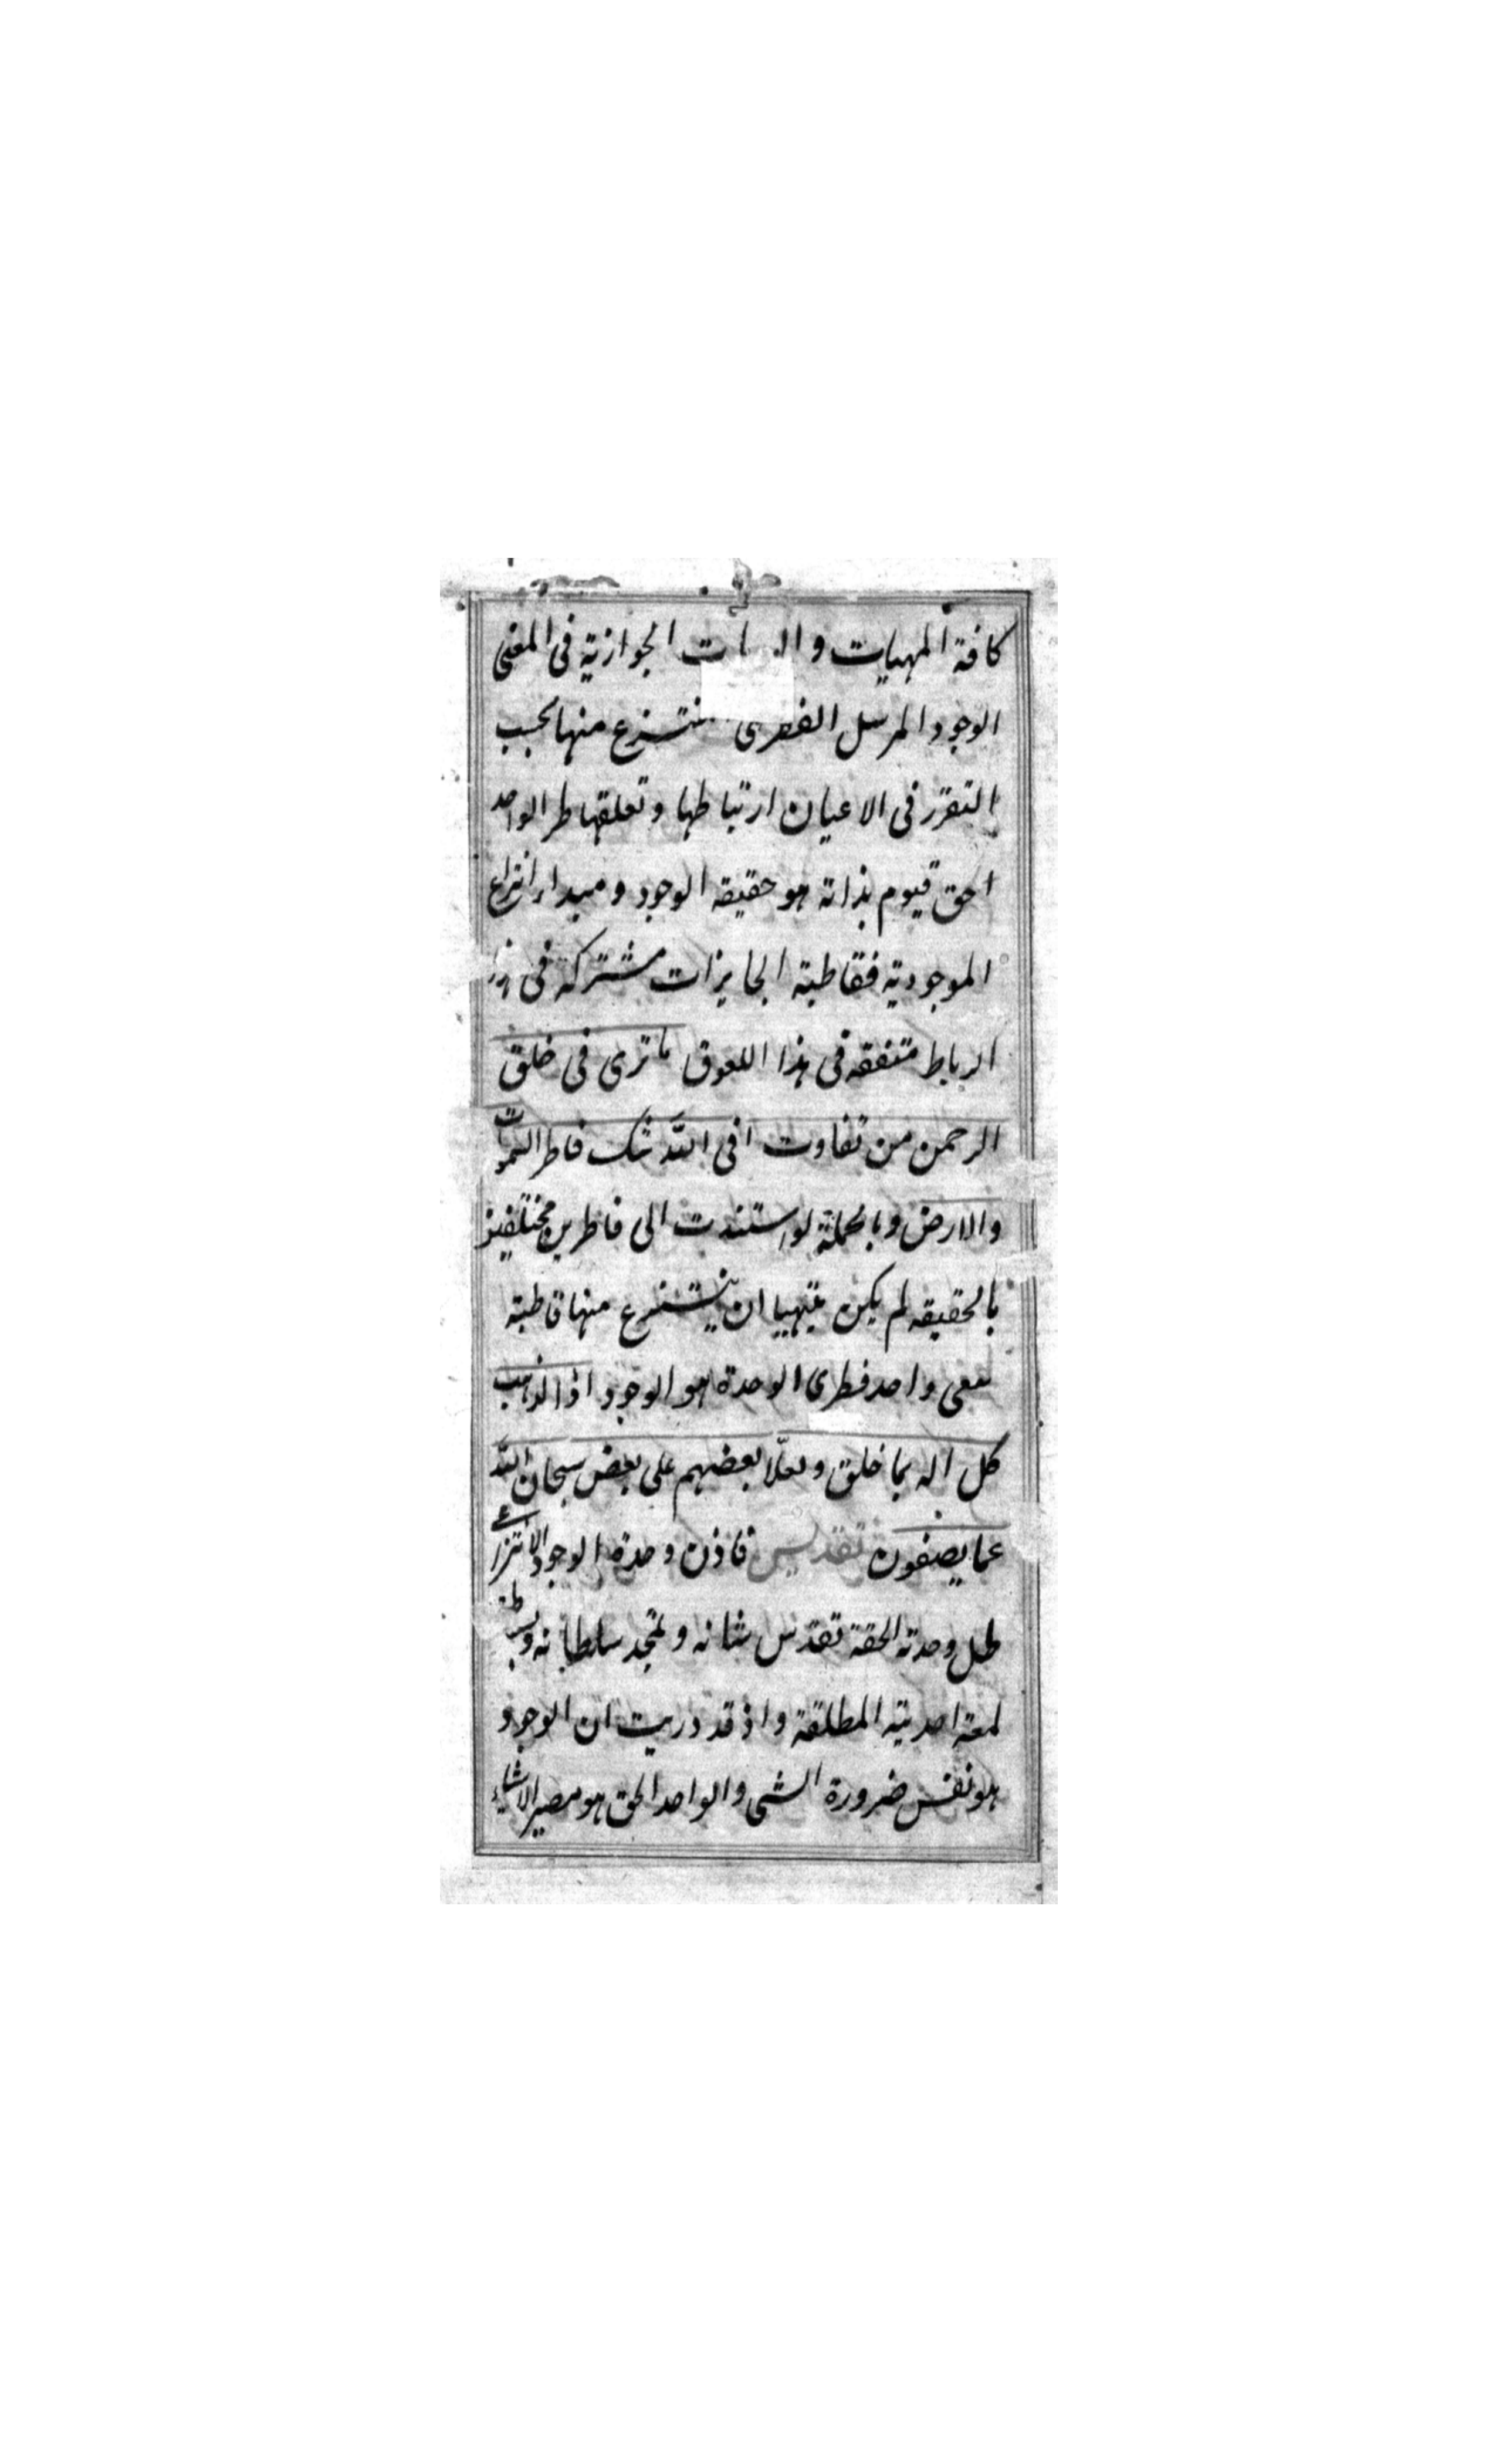 كافة المهيات و الجوازية فى المعنى
الوجود المرسل الفطرى المنتزع منها بحسب
التقرر فى الاعيان ارتباطها وتعلقها طر الواحد
احق قيوم بذاته هو حقيقه الوجود ومبداء انتزاع
الموجودية فقاطبته الجايزات مشتركه فى
الرباط متفقه فى هذا اللعوق ما ترى فى خلق
الرحمن من تفاوت افى الله شك فاطر السموات
والارض وبالجملة لو استندت الى فاطرين مختلفين
بالحقيقه لم يكن يتهيا ان ينتزع منها قاطبته
معنى واحد فطرى الوحدة هو الوجود اذا لذهب
كل اله بما خلق ولعلا بعضهم على بعض سبحان الله
عما يصفون تقديس فاذن وحدة الوجود الانتزاعى
ظل وحدته الحقة تقدس شانه وتمجد سلطانه وبساطته
لمعة احديته المطلقة واذ قد دريت ان الوجود
هو نفس ضرورة الشى والواحد الحق هو مصير الاشياء